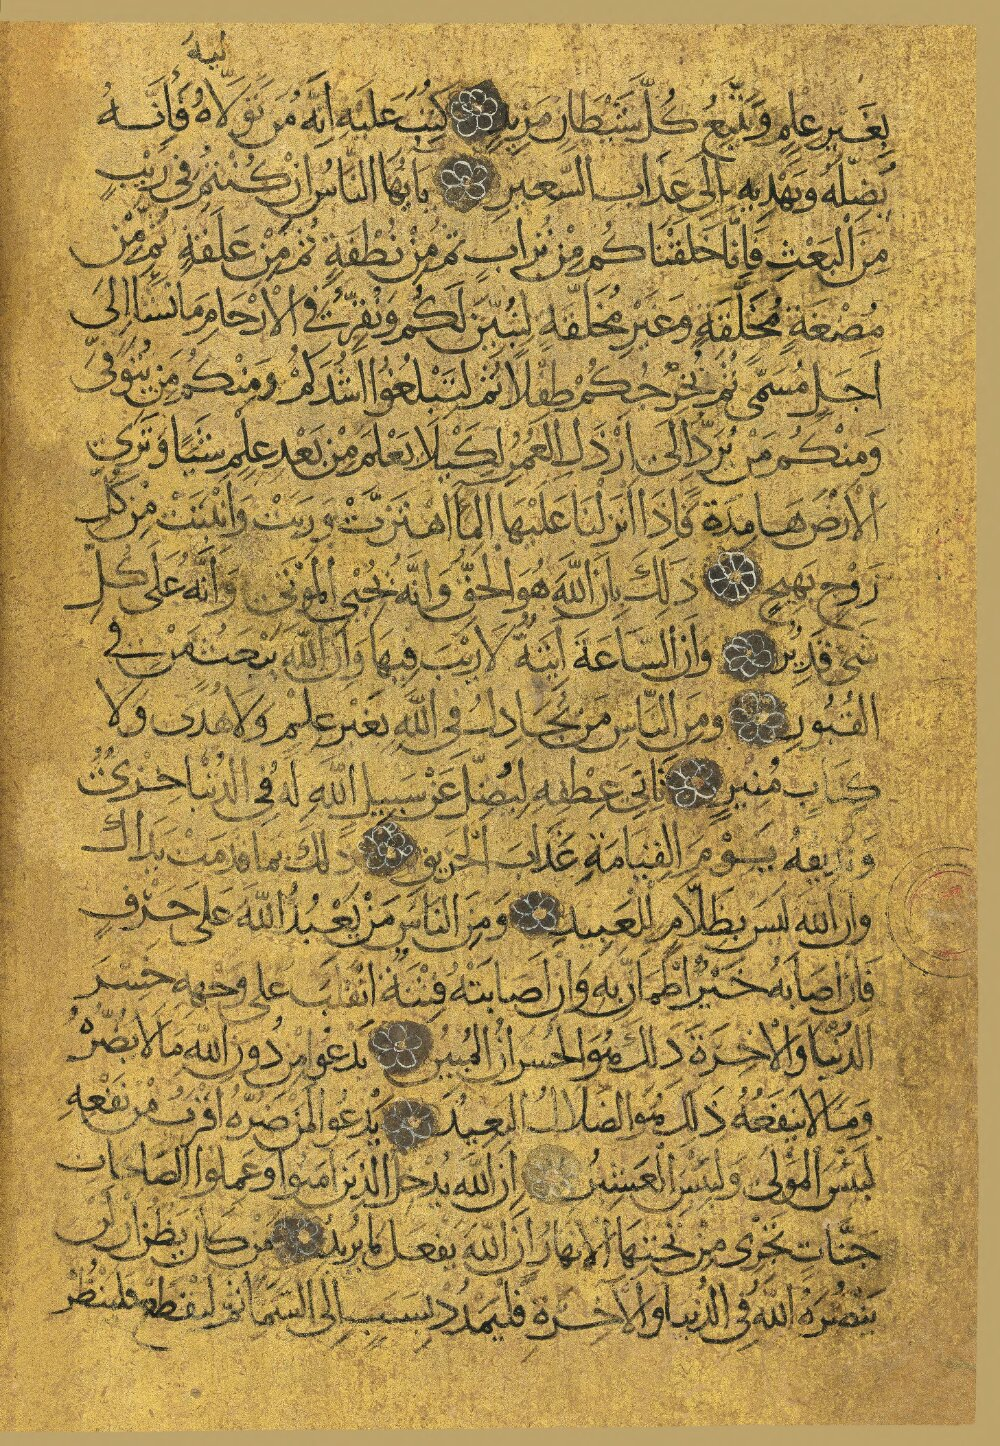 بغير علم ويتبع كل شيطان مريد كتب عليه انه من تولاه فانه
يضله ويهديه الى عذاب السعير يايها الناس ان كنتم في ريب
من البعث فانا خلقناكم من تراب ثم من نطفة ثم من علقة ثم من
مضغة مخلقة وغير مخلقة لنبين لكم ونقر في الارحام ما نشا الى
اجل مسمى ثم نخرجكم طفلا ثم لتبلغوا اشدكم ومنكم من يتوفى
ومنكم من يرد الى ارذل العمر لكيلا يعلم من بعد علم شيئا وترى
الارض هامدة فاذا انزلنا عليها الما اهتزت وربت وانبتت من كل
زوج بهيج ذلك بان الله هو الحق وانه يحيي الموتى وانه على كل
شي قدير وان الساعة اتية لا ريب فيها وان الله يبعث من في
القبور ومن الناس من يجادل في الله بغير علم ولا هدى ولا
كتاب منير ثاني عطفه ليضل عن سبيل الله له في الدنيا خزي
ونذيقه يوم القيامة عذاب الحريق ذلك بما قدمت يداك
وان الله ليس بظلام للعبيد ومن الناس من يعبد الله على حرف
فان اصابه خير اطمان به وان اصابته فتنة انقلب على وجهه خسر
الدنيا والاخرة ذلك هو الخسران المبين يدعوا من دون الله ما لا يضره
وما لا ينفعه ذلك هو الضلال البعيد يدعوا لمن ضره اقرب من نفعه
لبئس المولى ولبئس العشير ان الله يدخل الذين امنوا وعملوا الصالحات
جنات تجرى من تحتها الانهار ان الله يفعل ما يريد من كان يظن ان لن
ينصره الله في الدنيا والاخرة فليمدد بسبب الى السما ثم ليقطع فلينظر